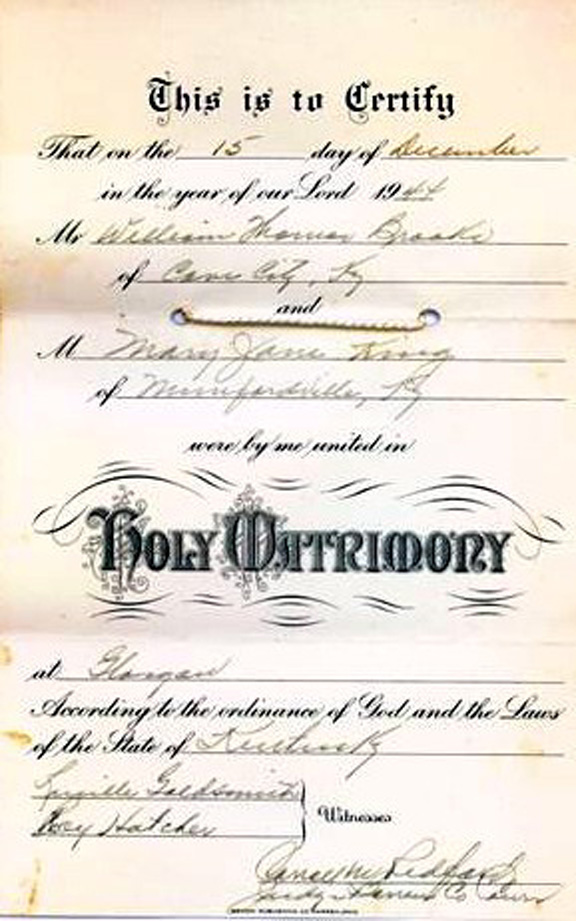 This is to Certify
That on the 15 day of December
in the year of our Lord 1944
Mr William Thomas Brooks
of Cave City, Ky
and
M Mary Jane King
of Munfordville, Ky
were by me united in
HOLY MATRIMONY
at Glasgow
According to the ordinance of God and the Laws
of the State of Kentucky
Lucille Goldsmith
Hatcher
Witnesses
Redford
Judge Barren Co Court